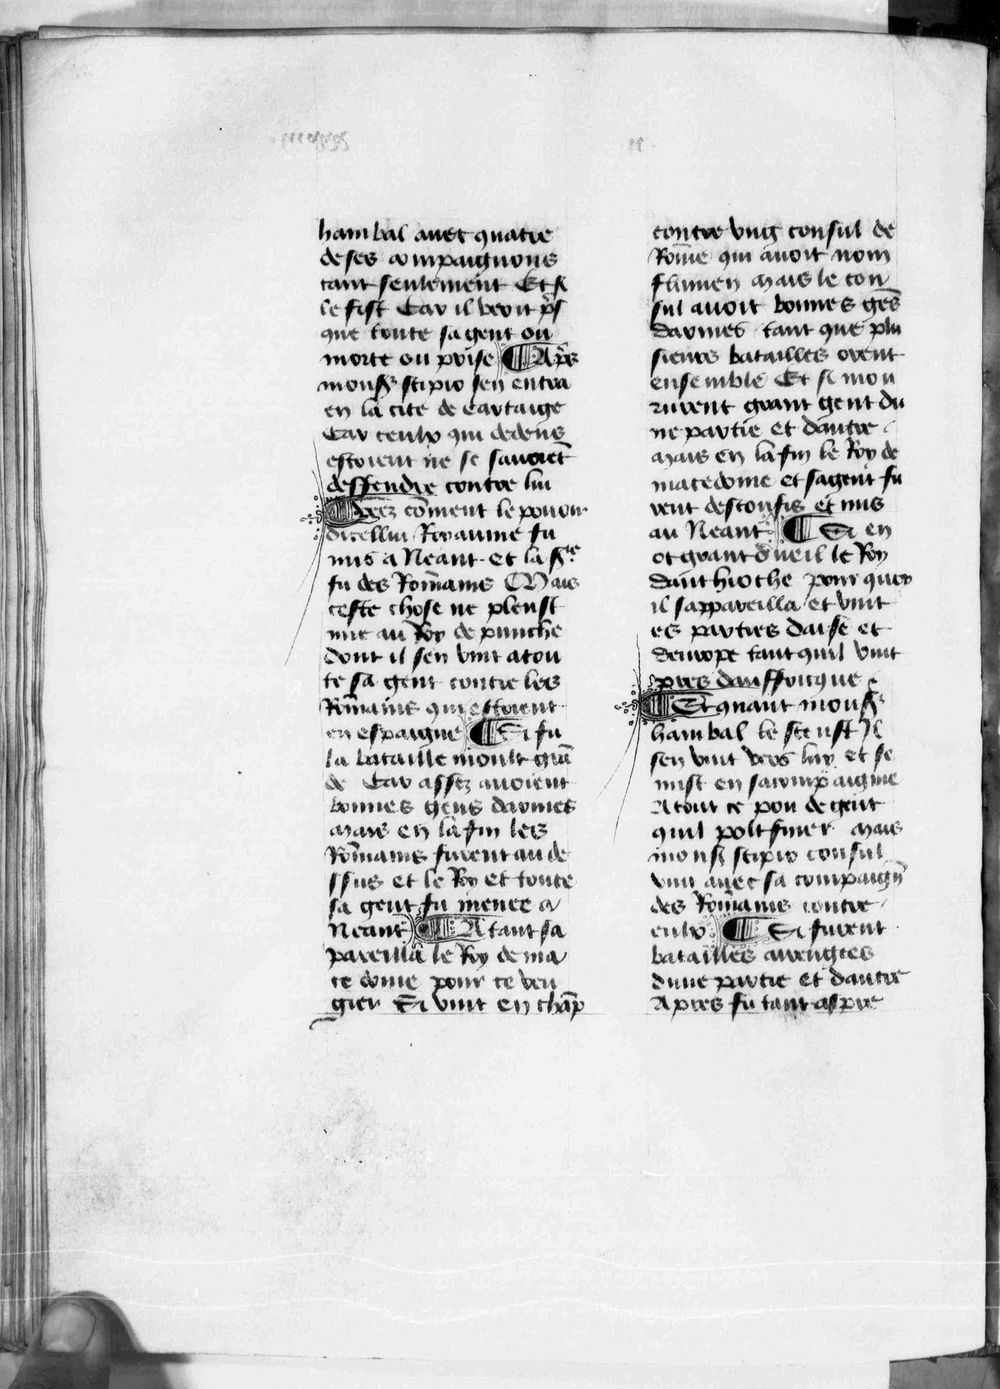 hambal avec quatre
de ses compaignons
tant seulement Et si
le fist Car il veoit p̃s
que toute sa gent ou
morte ou prise ¶ Ap̃s
mons̃ scipio sen entra
en la cite de cartaige
Car ceulx qui dedens
estoient ne se sauoiẽt
deffendre contre lui
¶ Veez cõment le pouoir
dicellui Royaume fu
mis a Neant et la
fu des Rom̃ains Mais
ceste chose ne pleust
mie au Roy de punche
dont il sen vint atou
te sa gent contre les
Rom̃ains qui estoient
en espaigne ¶ Si fu
la bataille moult grã
de Car assez auoient
bonnes gens darmes
Mais en la fin les
Rom̃ains furent au de
ssus et le Roy et toute
sa gent fu menee a
Neant ¶ Atant sa
pareilla le Roy de ma
ce done pour ce ven
gier Si vint en chãp
contre vng consul de
Rom̃e qui auoit nom
flumen Mais le con
sul auoit bonnes gẽs
darmes tant que plu
sieurs batailles orent
ensemble Et si mou
rurent grant gent du
ne partie et dautre
Mais en la fin le Roy de
macedoine et sa gent fu
rent desconfis et mis
au Neant ¶ Si en
ot grant dueil le Roy
danthioche pour quoy
il sappareilla et vint
es parties daise et
deurope tant quil vint
pres dauffricque
¶ Et quant mons̃
hambal le sceust Il
sen vint vers luy et se
mist en sa compaignie
Atout ce pou de gent
quil polt finer Mais
mons̃ scipio consul
vint auec sa compaign̄
des Rom̃ains contre
eulx ¶ Si furent
batailles arengies
dune partie et dautre
Apres fu tant aspre